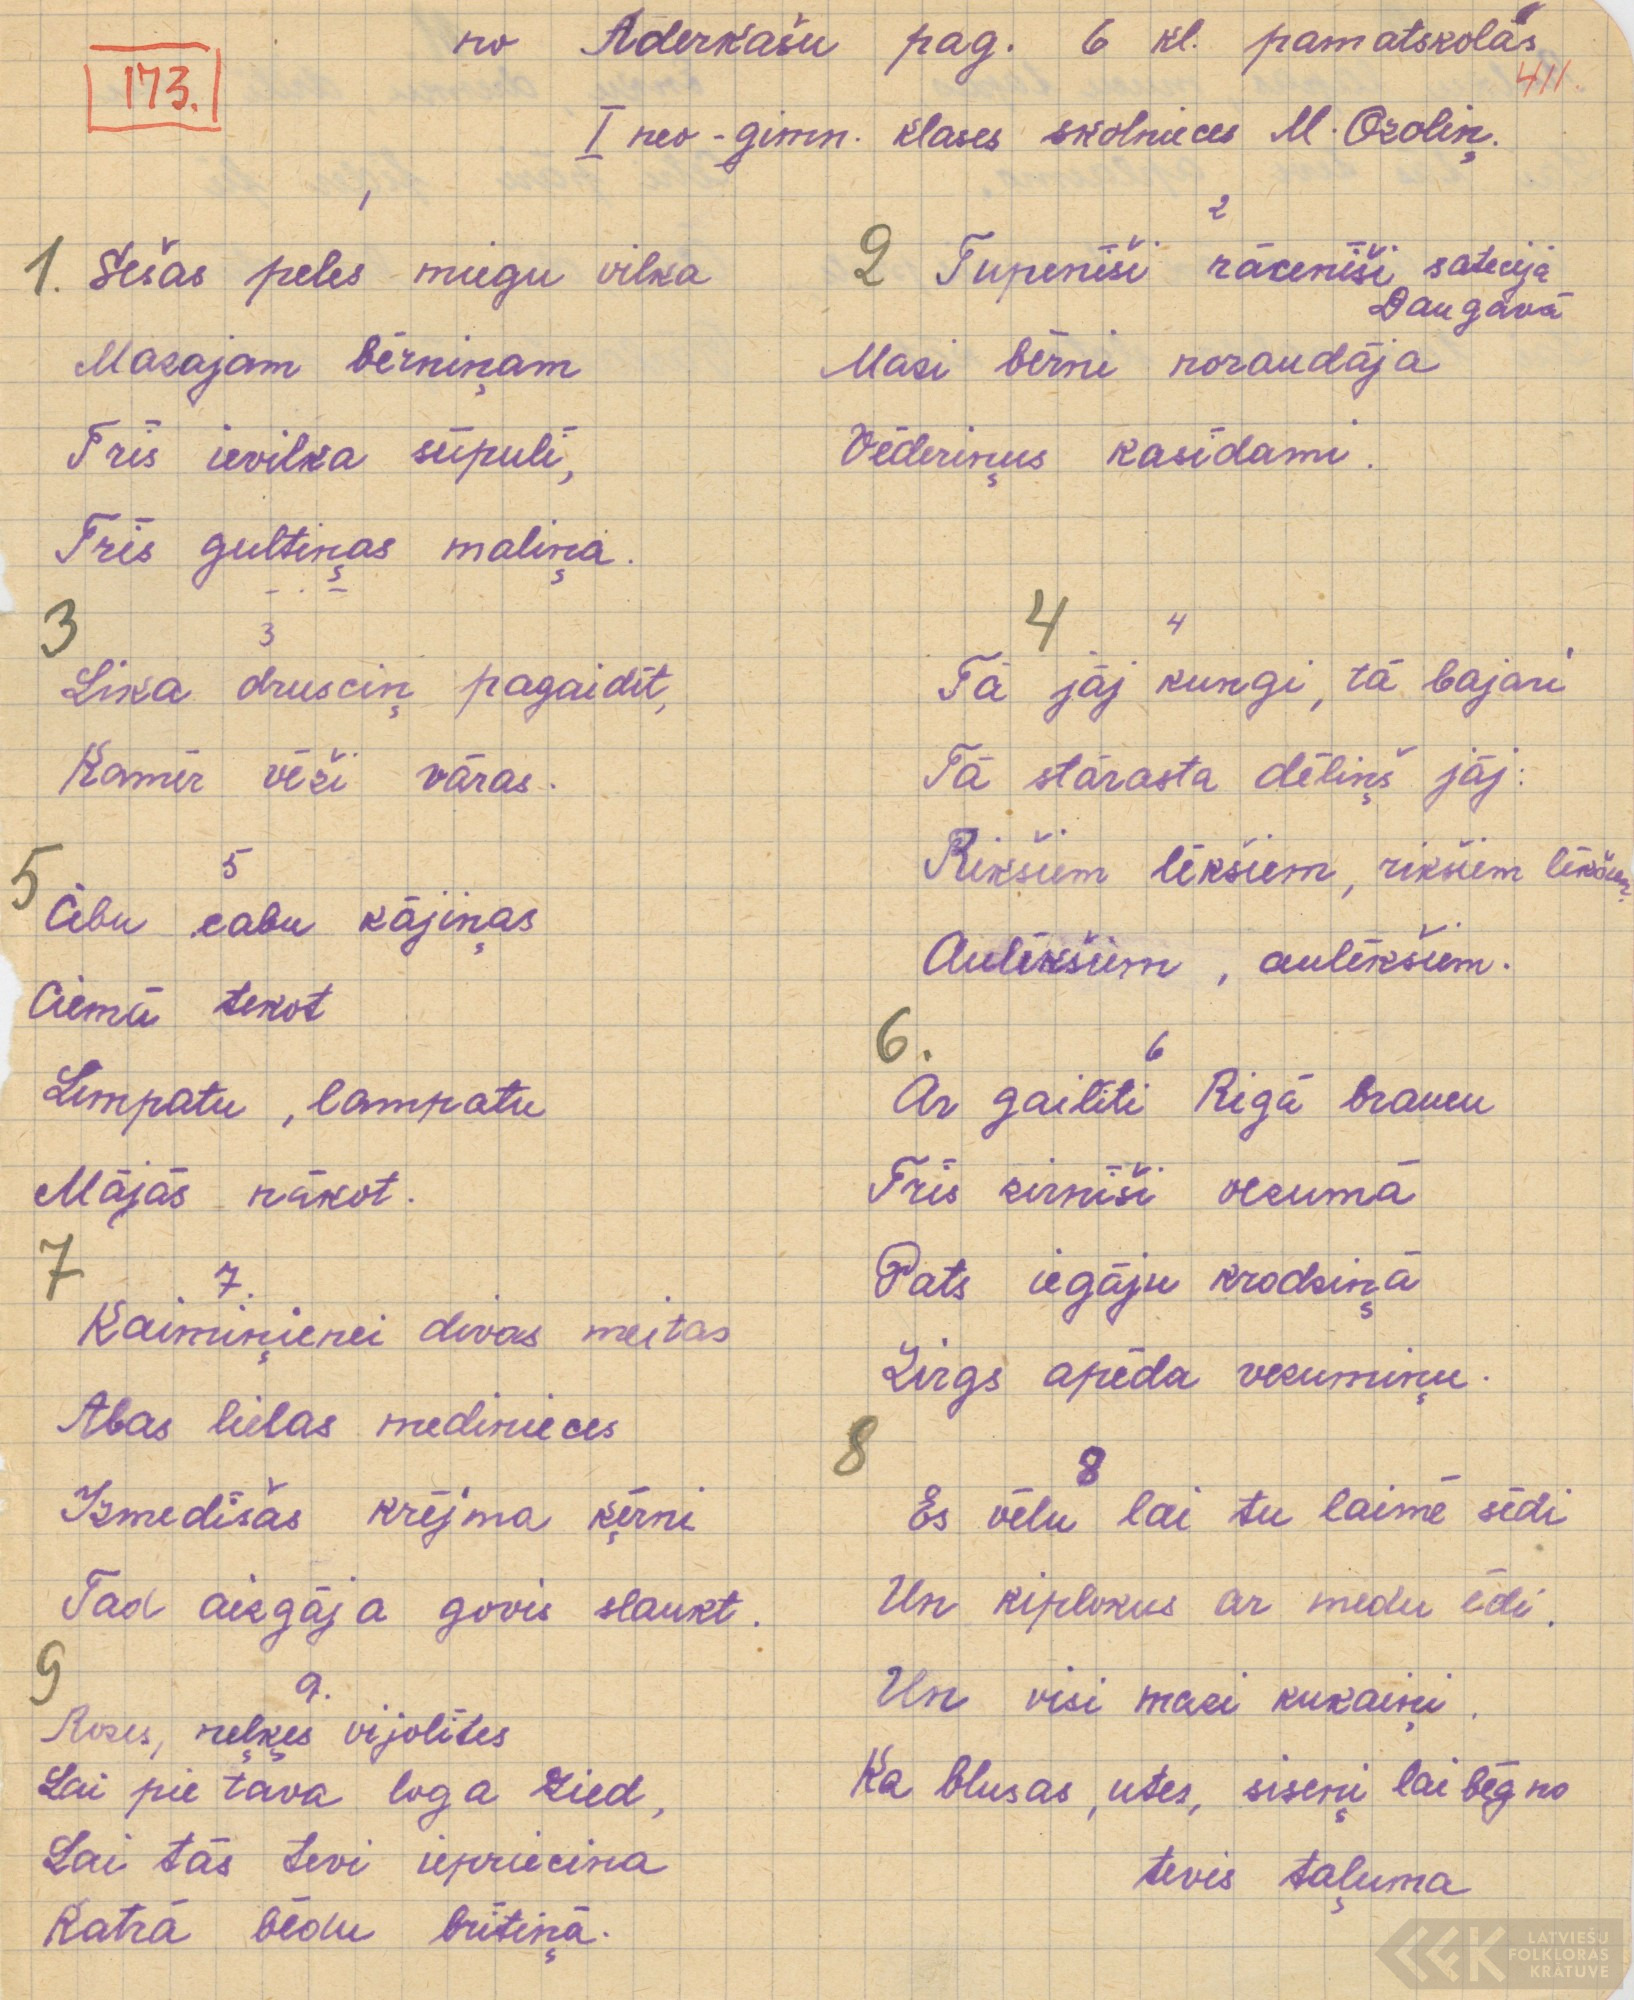 no Aderkašu pag. 6 kl. pamatskolas
173.
411.
I neo-gimn. klases skolnieces M. Ozoliņ.
1
1. Sešas peles miegu vilka
Mazajam bērniņam
Trīs ievilka šūpulī,
Trīs gultiņas maliņā.
2
2 Tupenīši rācenīši satecēja
Daugavā
Mazi bērni noraudāja
Vēderiņus kasīdami.
3
3
Lika drusciņ pagaidīt,
Kamēr vēži vāras.
4
4
Tā jāj kungi, tā bajāri
Tā stārasta dēliņš jāj:
Rikšiem lēkšiem, rikšiem lēkšiem,
Aulēkšiem, aulēkšiem.
5
5
Cibu cabu kājiņas
Ciemā tekot
Limpatu, lampatu
Mājās nākot.
6.
6
Ar gailīti Rīgā braucu
Trīs zirnīši vezumā
Pats iegāju krodziņā
Zirgs apēda vezumiņu.
7
7.
Kaimiņienei divas meitas
Abas lielas medinieces
Izmedīšās krējma ķērni
Tad aizgāja govis slaukt.
8
8
Es vēlu lai tu laimē sēdi
Un kiplokus ar medu ēdi.
Un visi mazi kukaiņi.
Ka blusas, utes, siseņi lai bēg no
tevis taļuma
9
9.
Rozes, neļķes vijolītes
Lai pie tava loga zied,
Lai tās tevi iepriecina
Katrā bēdu brītiņā.
LATVIEŠU
FOLKLORAS
KRĀTUVE